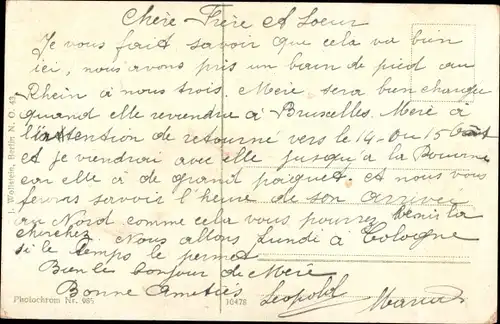 Chère Frère et Soeur
Je vous fait savoir que cela va bien
ici, nous avons pris un bain de pied au
Rhein à nous trois. Merè sera bien change
quand elle reviendra à Bruxelles. Merè à
l'attention de retourné vers le 14 ou 15
et je viendrai avec elle jusqu'a la
car elle à de grand paiquet et nous vous
ferons savoir l'heure de son arriver
au Nord comme cela vous pourrez venis la
cherchez. Nous allons Lundi à Cologne
si le temps le permet
Bien le bonjour de Merè
Bonne Ametiès Leopold
J. Wollstein, Berlin N. O. 43
Photochrom Nr.
10478